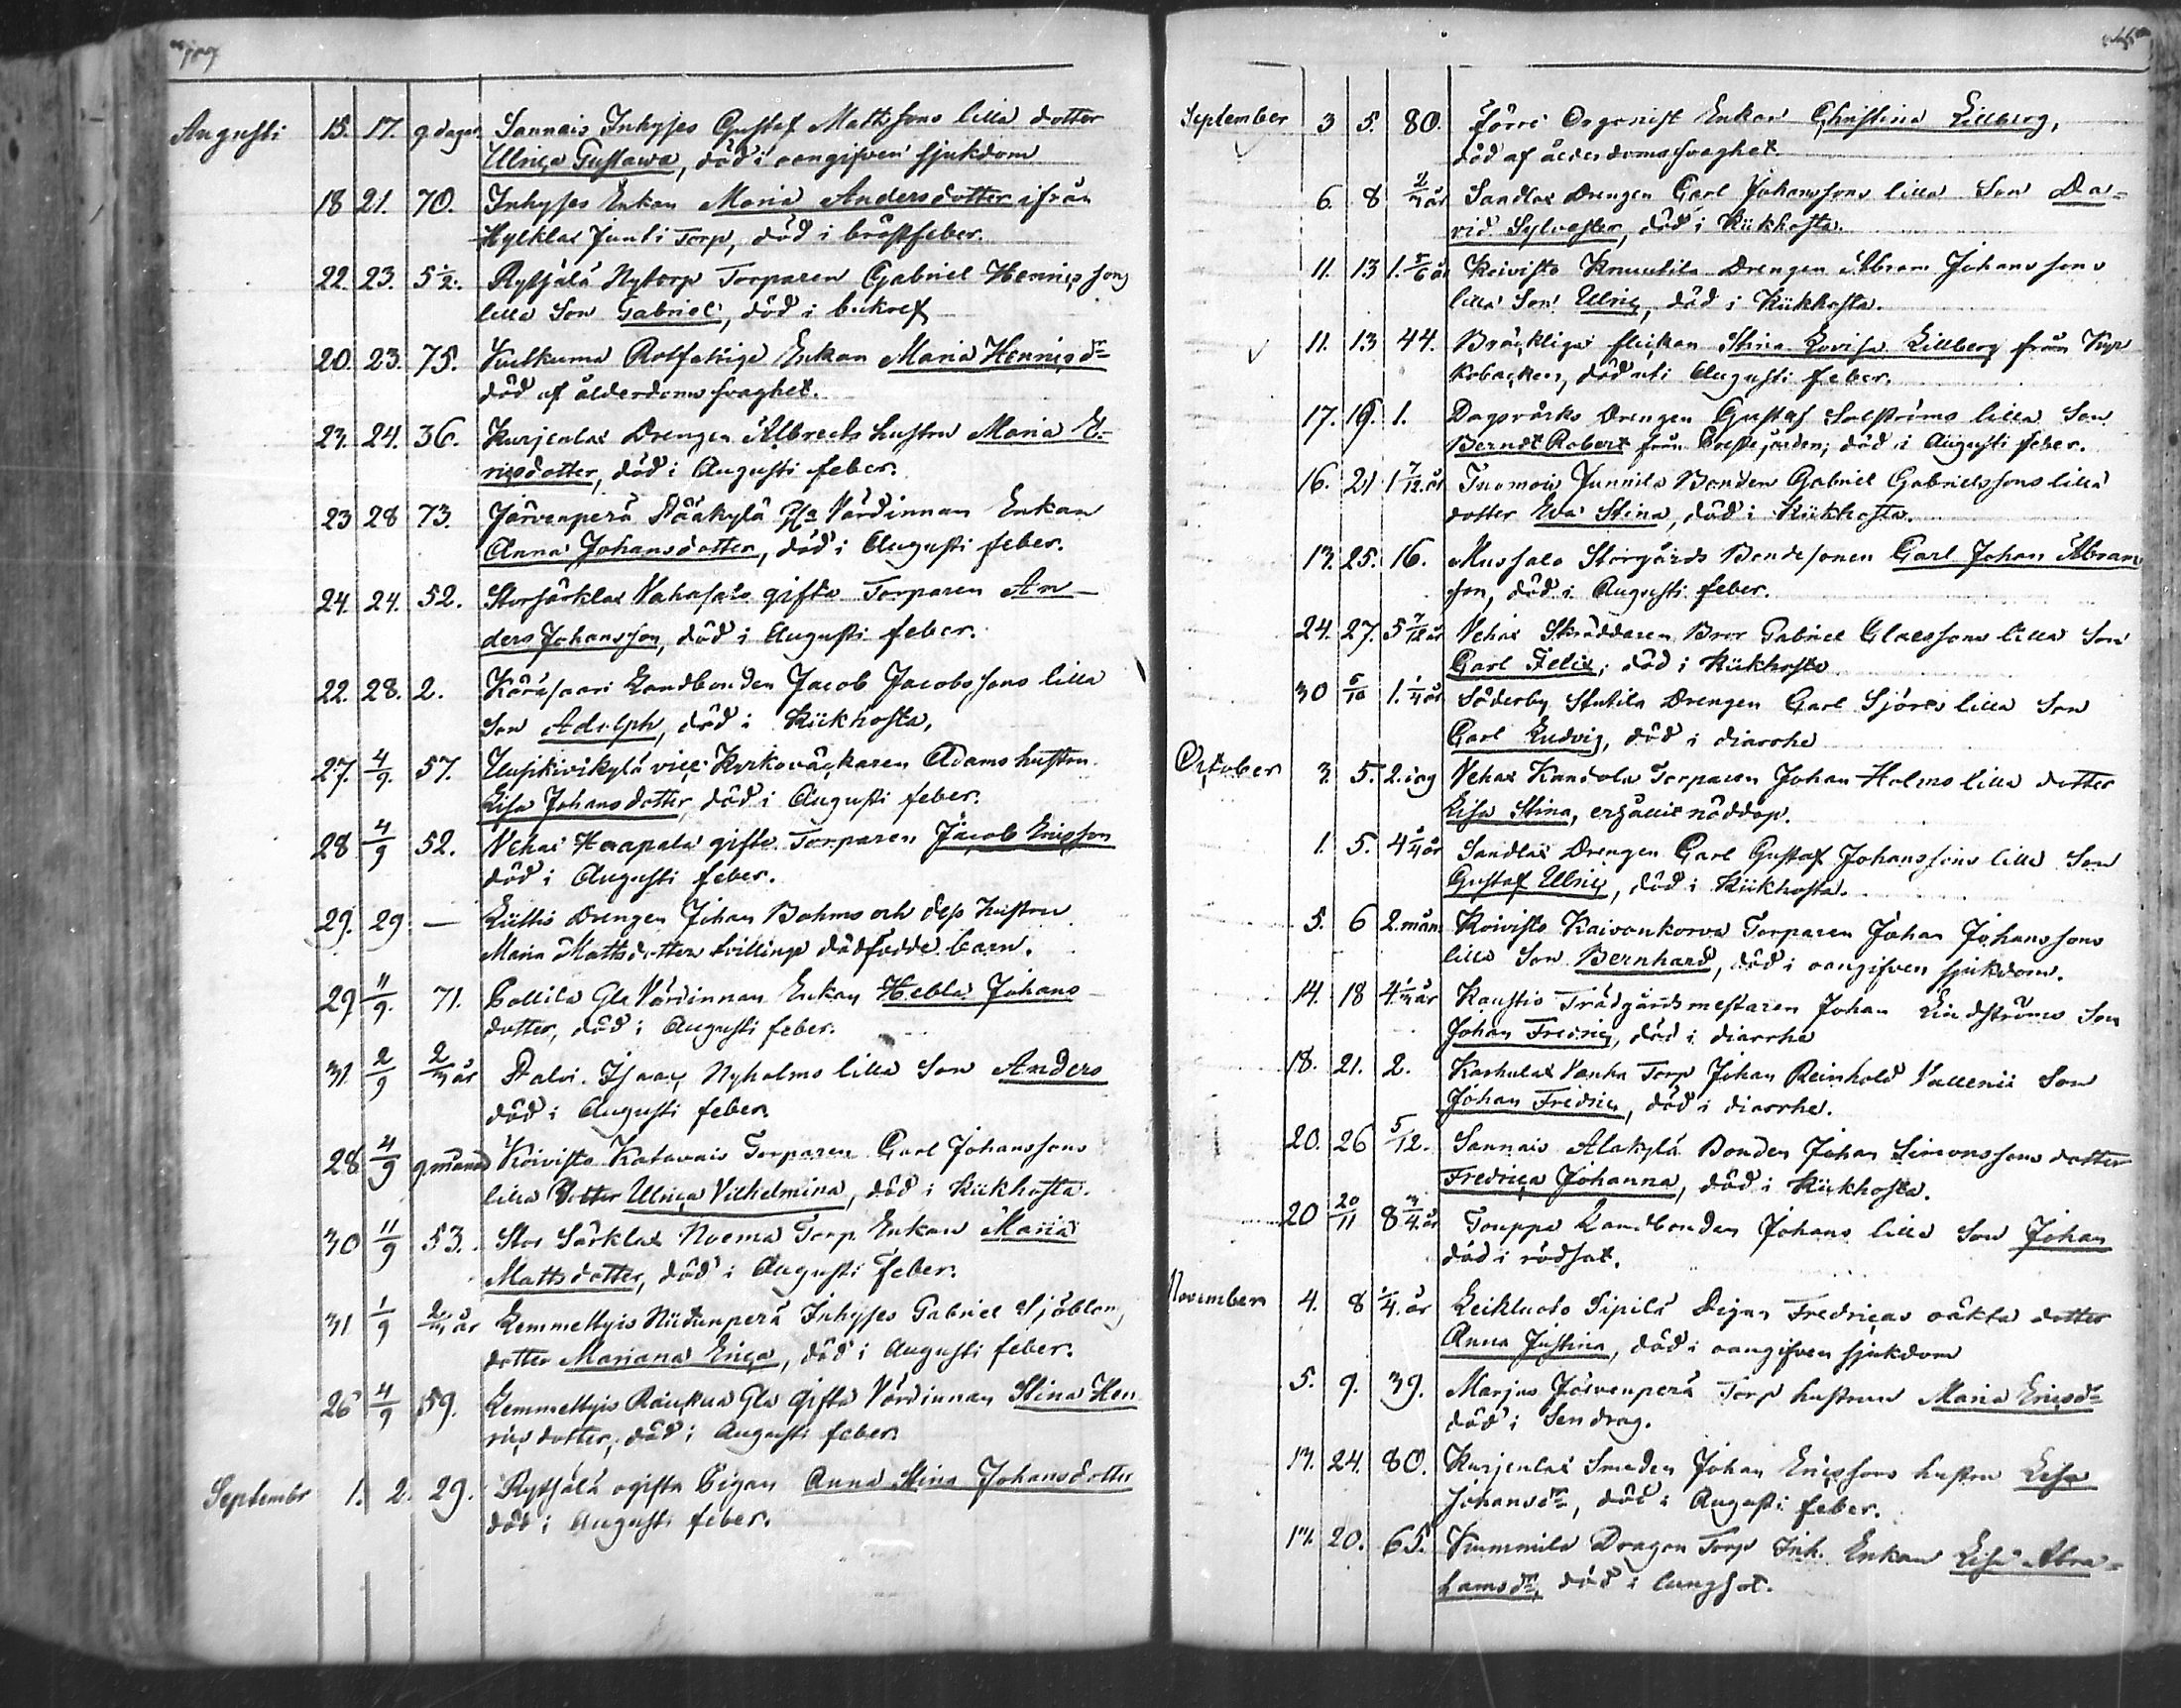 Augusti 15. 17. 9 dagar Sannais Inhyses Gustaf Mattssons lilla dotter
Ulrica Gustawa, död i oangifven sjukdom
18 21. 70. Inhyses Enkan Maria Andersdotter ifrån
Hycklax Junti Torp, död i bröstfeber.
22. 23. 5 1/2. Rytsjälä Nytorp Torparen Gabriel Henricssons
lilla Son Gabriel, död i bukref
20. 23. 75. Kulkuma Rotfattiga Enkan Maria Henricsdr
död af ålderdomssvaghet.
23. 24. 36. Kurjenlax Drengen Albrechts hustru Maria E-
ricsdotter, död i Augusti feber.
23 28 73. Järvenperä Pääkylä Gla Värdinnan Enkan
Anna Johansdotter, död i Augusti feber.
24. 24. 52. Storsärklax Vahasalo gifta Torparen An-
ders Johansson, död i Augusti feber.
22. 28. 2. Käräsaari Landbonden Jacob Jacobssons lilla
Son Adolph, död i Kikhosta,
27. 4/9. 57. vice Kyrkoväckaren Adams hustru
Lisa Johansdotter, död i Augusti feber.
28 4/9 52. Vehax Haapala gifte Torparen Jacob Ericsson
död i Augusti feber.
29. 29 — Drengen Johan Bohms och dess hustru
Maria Mattsdotters tvillings dödfödde barn.
29 11/9. 71. Pollila Gla Värdinnan Enkan Hebla Johans
dotter, död i Augusti feber.
31. 2/9 2/3 år Isaac Nyholms lilla Son Anders
död i Augusti feber
28 4/9 9 månad Koivisto Katavais Torparen Carl Johanssons
lilla dotter Ulrica Vilhelmina, död i Kikhosta.
30 11/9 53. Stor Särklax Noema Torp Enkan Maria
Mattsdotter, död i Augusti feber.
31 1/9 2/3 år Lemmettyis Nictunperä Inhyses Gabriel Sjöbloms
dotter Mariana Erica, död i Augusti feber.
26 4/9 59. Lemmettyis Raukua Gla Gifta Värdinnan Stina Hen
ricsdotter, död i Augusti feber.
Septembr 1. 2. 29. Rytsjälä ogifta Pigan Anna Stina Johansdotter
död i Augusti feber.
September 3 5. 80. Förre Organist Enkan Christina Lillberg,
död af ålderdomssvaghet.
6. 8 år Sandlax Drengen Carl Johanssons lilla Son Da-
vid Sylvester, död i Kikhosta.
11. 13 1. 5/6 år Koivisto Knuutila Drengen Abram Johanssons
lilla Son Ulric, död i Kikhosta.
11. 13 44. Bräckliga flickan Stina Lovisa Lillberg från Kyr
kobacken, död uti Augusti feber.
17. 19. 1. Dagsvärks Drengen Gustaf Solströms lilla Son
Berndt Robert från död i Augusti feber.
16. 21 1 7/12 år Tuomois Junnila Bonden Gabriel Gabrielssons lilla
dotter Eva Stina, död i Kikhosta.
13. 25. 16. Mussalo Storgårds Bondesonen Carl Johan Abram
son, död i Augusti feber.
24. 27. 5 7/12 år Vehax Skräddaren Bror Gabriel Claessons lilla Son
Carl Felix, död i Kikhosta
30 6/10 1. 1/4 år Söderby Stutila Drengen Carl Sjöros lilla Son
Carl Ludvig, död i diarrhe
October 3 5. 2. dag Vehax Kandola Torparen Johan Holms lilla dotter
Lisa Stina, erhållit nöddop.
1. 5. 4 3/4 år Sandlax Drengen Carl Gustaf Johanssons lilla Son
Gustaf Ulric, död i Kikhosta.
5. 6 2 mån. Koivisto Kaivonkorva Torparen Johan Johanssons
lilla Son Bernhard, död i oangifven sjukdom.
14. 18 4 1/3 år Kaustis Trädgårdsmestaren Johan Lindströms Son
Johan Fredric, död i diarrhe
18. 21. 2. Karhulax Vanha Torp Johan Reinhold Vallenii Son
Johan Fredric, död i diarrhe.
20. 26 5/12. Sannais Alakylä Bonden Johan Simonssons dotter
Fredrica Johanna, död i Kikhosta.
20 20/11 8 3/4 år Touppa Landbonden Johans lilla Son Johan
död i rödsot.
November 4. 8 1/4. år Leikluoto Sipilä Pigan Fredricas oäkta dotter
Anna Justina, död i oangifven sjukdom
5. 9. 39. Marjus Järvenperä Torp hustrun Maria Ericsdr
död i Sendrag.
17. 24. 80. Kurjenlax Smeden Johan Ericssons hustru Lisa
Johansdr, död i Augusti feber.
17. 20. 65. Kummila Dragon Torp Inh. Enkan Lisa Abra-
hamsdr, död i lungsot.